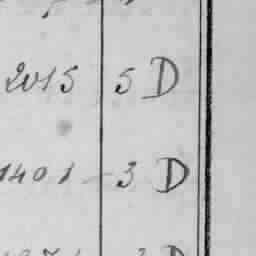 2015 5 D
1401 - 3 D